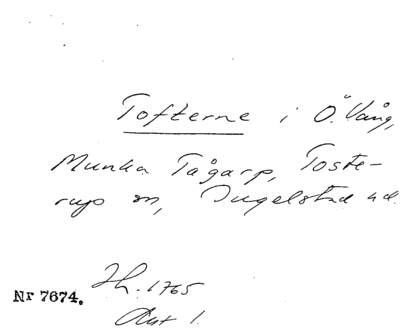 Tofterne i Ö. Vång,
Munka Tågarp, Toste-
rup sn, Ingelstad hd.
Lh. 1765
Akt 1.
Nr 7674.